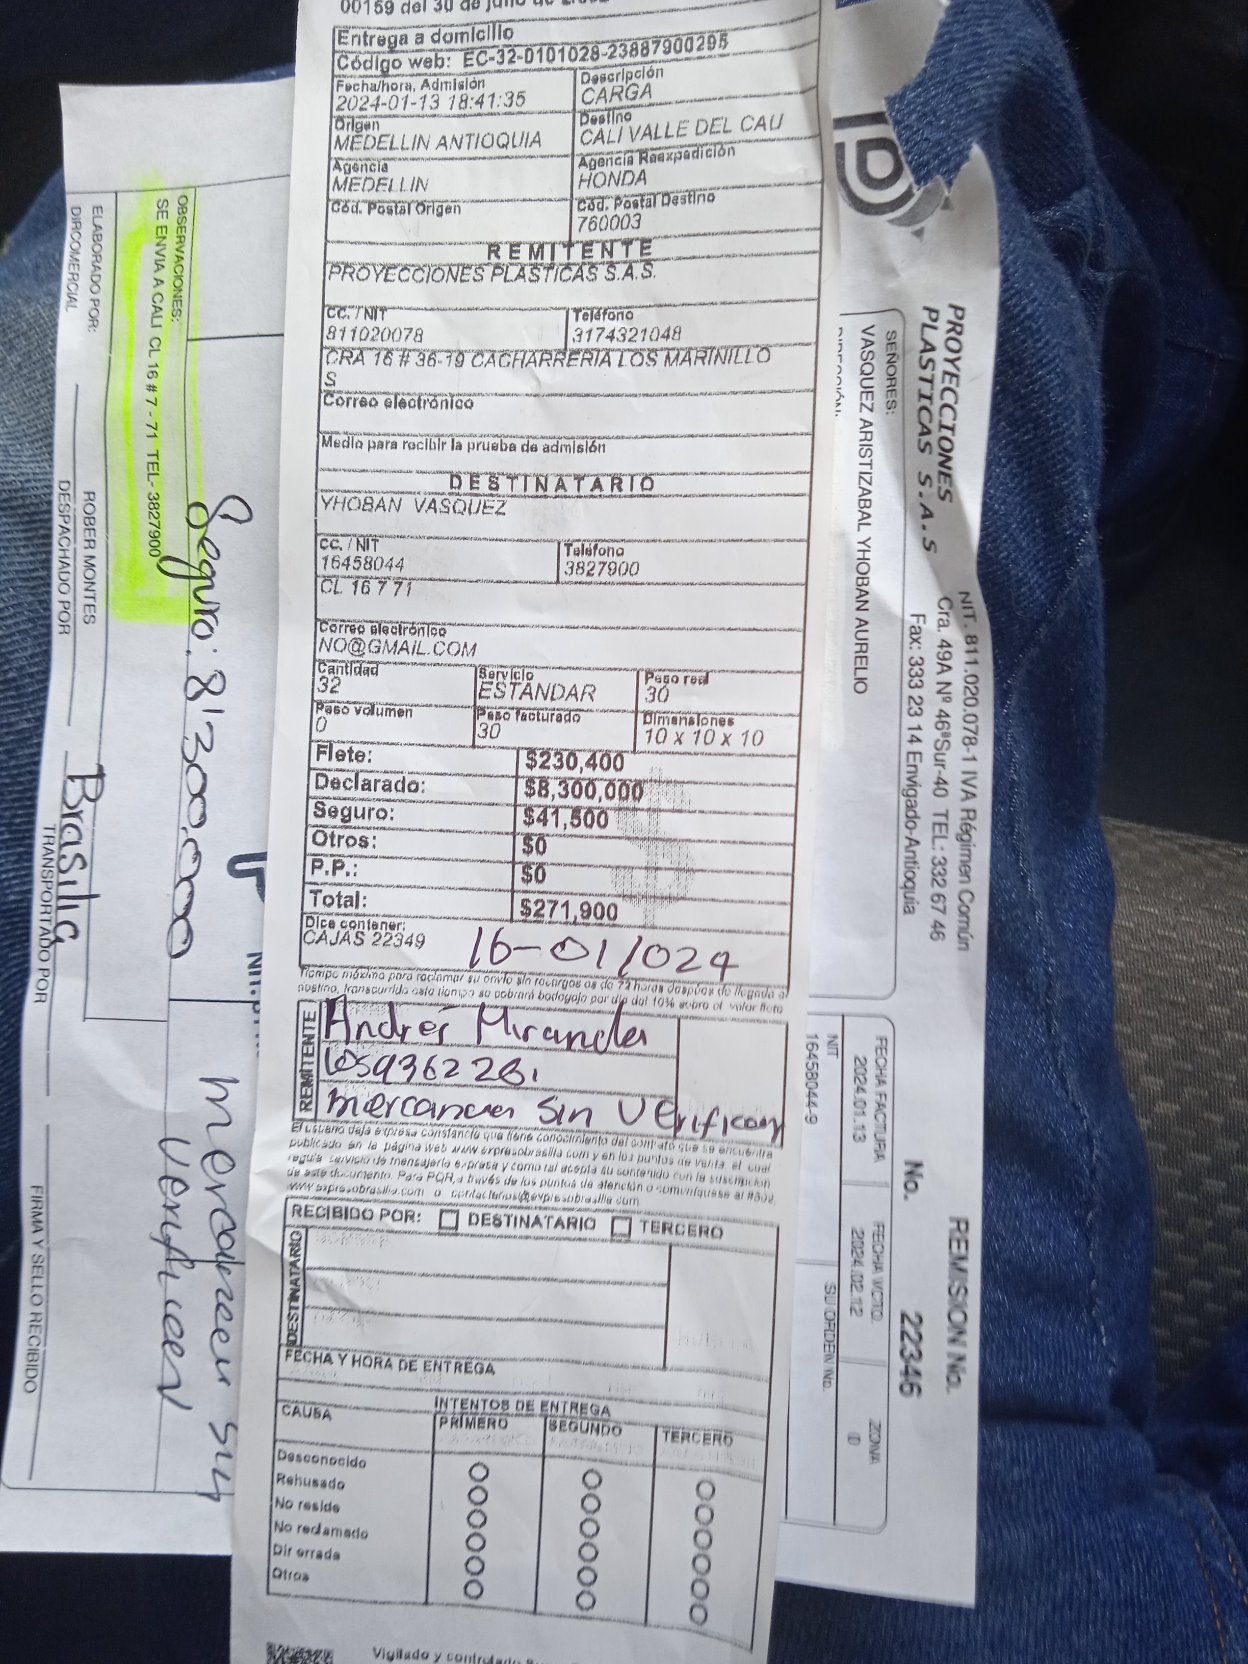 00159 del 30 de
Entrega a domicilio
Código web: EC-32-0101028-23887900295
Fecha/hora, Admisión
2024-01-13 18:41:35
Descripción
CARGA
Origen
MEDELLIN ANTIOQUIA
Destino
CALI VALLE DEL CAU
Agencia
MEDELLIN
Agencia Reexpedición
HONDA
Cód. Postal Origen
Cód. Postal Destino
760003
REMITENTE
PROYECCIONES PLASTICAS S.A.S.
CC. / NIT
811020078
Teléfono
3174321048
CRA 16 # 36-19 CACHARRERIA LOS MARINILLO
S
Correo electrónico
Medio para recibir la prueba de admisión
DESTINATARIO
YHOBAN VASQUEZ
CC. / NIT
16458044
Teléfono
3827900
CL 16 7 71
Correo electrónico
NO@GMAIL.COM
Cantidad
32
Servicio
ESTANDAR
Peso real
30
Peso volumen
0
Peso facturado
30
Dimensiones
10 x 10 x 10
Flete: $230,400
Declarado: $8,300,000
Seguro: $41,500
Otros: $0
P.P.: $0
Total: $271,900
Dice contener:
CAJAS 22349
16-01/024
Tiempo máximo para reclamar su envío sin recargos es de 72 horas después de llegada al
destino, transcurrido este tiempo se cobrará bodegaje por día del 10% sobre el valor flete
REMITENTE
Andrés Miranda
mercancia sin Verificar
El usuario deja expresa constancia que tiene conocimiento del contrato que se encuentra
publicado en la página web www.expresobrasilia.com y en los puntos de venta, el cual
regula servicio de mensajería expresa y como tal acepta su contenido con la suscripción
de este documento. Para PQR, a través de los puntos de atención o comuníquese al
www.expresobrasilia.com o contactenos@expresobrasilia.com
RECIBIDO POR: DESTINATARIO TERCERO
DESTINATARIO
FECHA Y HORA DE ENTREGA
CAUSA
INTENTOS DE ENTREGA
PRIMERO SEGUNDO TERCERO
Desconocido
Rehusado
No reside
No reclamado
Dir errada
Otros
Vigilado y
PROYECCIONES
PLASTICAS S.A.S
NIT. 811.020.078-1 IVA Régimen Común
Cra. 49A Nº 46ªSur-40 TEL: 332 67 46
Fax: 333 23 14 Envigado-Antioquia
REMISION No.
No. 22346
SEÑORES:
VASQUEZ ARISTIZABAL YHOBAN AURELIO
FECHA FACTURA
2024.01.13
FECHA VCTO.
2024.02.12
ZONA
NIT
16458044-9
SU ORDEN No.
OBSERVACIONES:
SE ENVIA A CALI CL 16 # 7 - 71 TEL- 3827900
Seguro: 8'300,000
mercancia sin
verificar
ELABORADO POR:
DIRCOMERCIAL
ROBER MONTES
DESPACHADO POR
Brasilia
TRANSPORTADO POR
FIRMA Y SELLO RECIBIDO